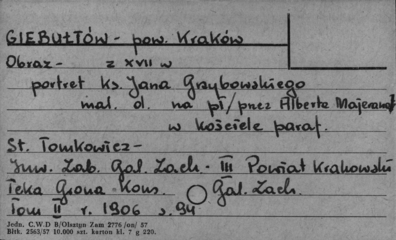 GIEBUŁTÓW - pow. Kraków
Obraz - z XVII w
portret ks. Jana Grzybowskiego
mal. ol. na pł/przez Alberta
w kościele paraf.
St. Tomkowicz -
Inw. Zab. Gal. Zach. - III Powiat Krakowski
Teka Grona Kons. Gal. Zach.
Tom II r. 1906 s. 94
Jedn. C.W.D B/Olsztyn Zam 2776 /on/ 57
Bltk. 2563/57 10.000 szt. karton kl. 7 g 220.